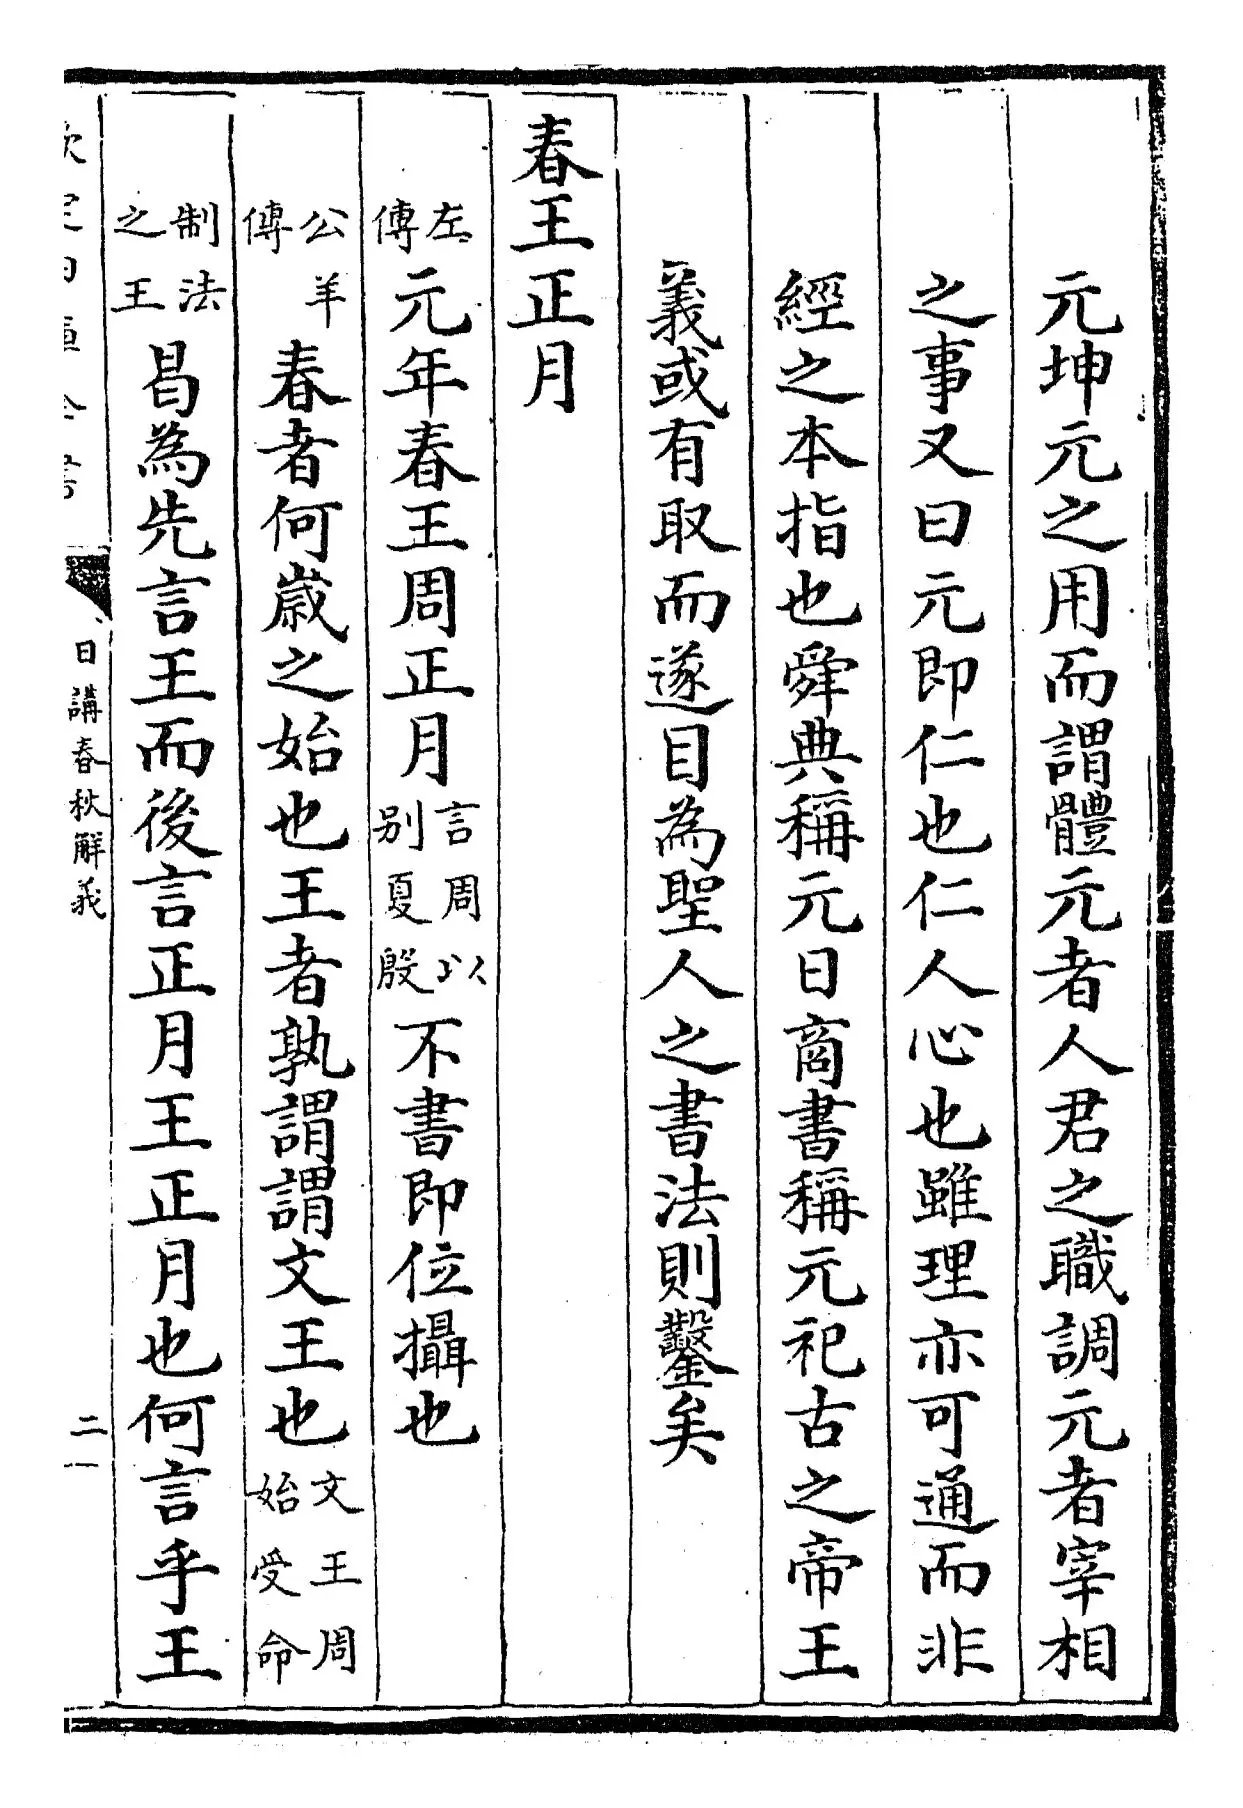 元坤元之用而謂體元者人君之職調元者宰相
之事又曰元即仁也仁人心也雖理亦可通而非
經之本指也舜典稱元日商書稱元祀古之帝王
義或有取而遂目為聖人之書法則鑿矣
春王正月
左傳元年春王周正月言周以別夏殷不書即位攝也
公羊傳春者何歲之始也王者孰謂謂文王也文王周始受命
制法之王曷為先言王而後言正月王正月也何言乎王
欽定四庫全書
日講春秋解義
二